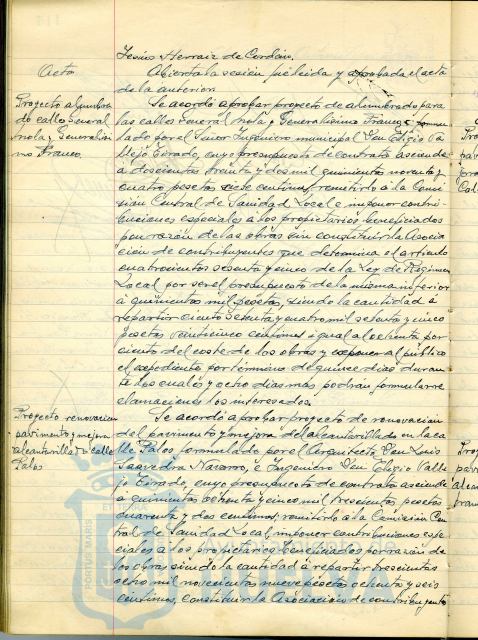 Jesús Herraiz de Cordáin.
Acta
Abierta la sesión fué leida y aprobada el acta
de la anterior.
Proyecto alumbra
do calles General
Mola y Generalísi
mo Franco.
Se acordó aprobar proyecto de alumbrado para
las calles General Mola y Generalísimo Franco, formu
lado por el Señor Ingeniero municipal Don Eligio Va
llejo Tirado, cuyo presupuesto de contrata asciende
á doscientas treinta y dos mil quinientas noventa y
cuatro pesetas siete centimos, remitirlo á la Comi
sión Central de Sanidad Local e imponer contri
buciones especiales á los propietarios beneficiados
por razón de las obras sin constituir la Asocia
ción de contribuyentes que determina el articulo
cuatrocientos sesenta y cinco de la Ley de Regimen
Local por ser el presupuesto de la misma inferior
á quinientas mil pesetas, siendo la cantidad á
repartir ciento setenta y cuatro mil setenta y cinco
pesetas veinticinco centimos igual al ochenta por
ciento del coste de las obras y exponer al público
el expediente por término de quince dias duran
te los cuales y ocho dias mas podran formular re
clamaciones los interesados.
Proyecto renovacion
pavimento y mejora
alcantarillado calle
Palos
Se acordó aprobar proyecto de renovación
del pavimento y mejora del alcantarillado en la ca
lle Palos formulado por el Arquitecto Don Luis
Saavedra Navarro, e Ingeniero Don Eligio Valle
jo Tirado, cuyo presupuesto de contrata asciende
á quinientas ochenta y cinco mil trescientas pesetas
cuarenta y dos centimos, remitirlo á la Comisión Cen
tral de Sanidad Local, imponer contribuciones espe
ciales á los propietarios beneficiados por razón de
las obras, siendo la cantidad á repartir trescientas
ocho mil novecientas nueve pesetas ochenta y seis
centimos, constituir la Asociación de contribuyentes
PORTUS MARIS